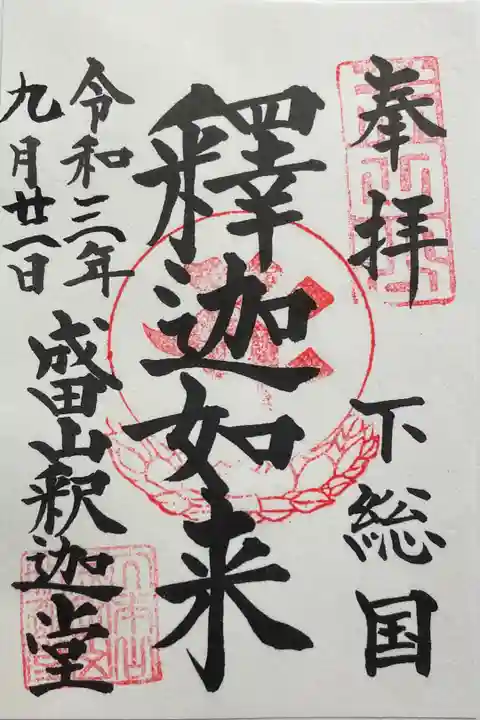 奉拝
下総国
釋迦如来
令和三年
九月廿一日
富山釈迦堂